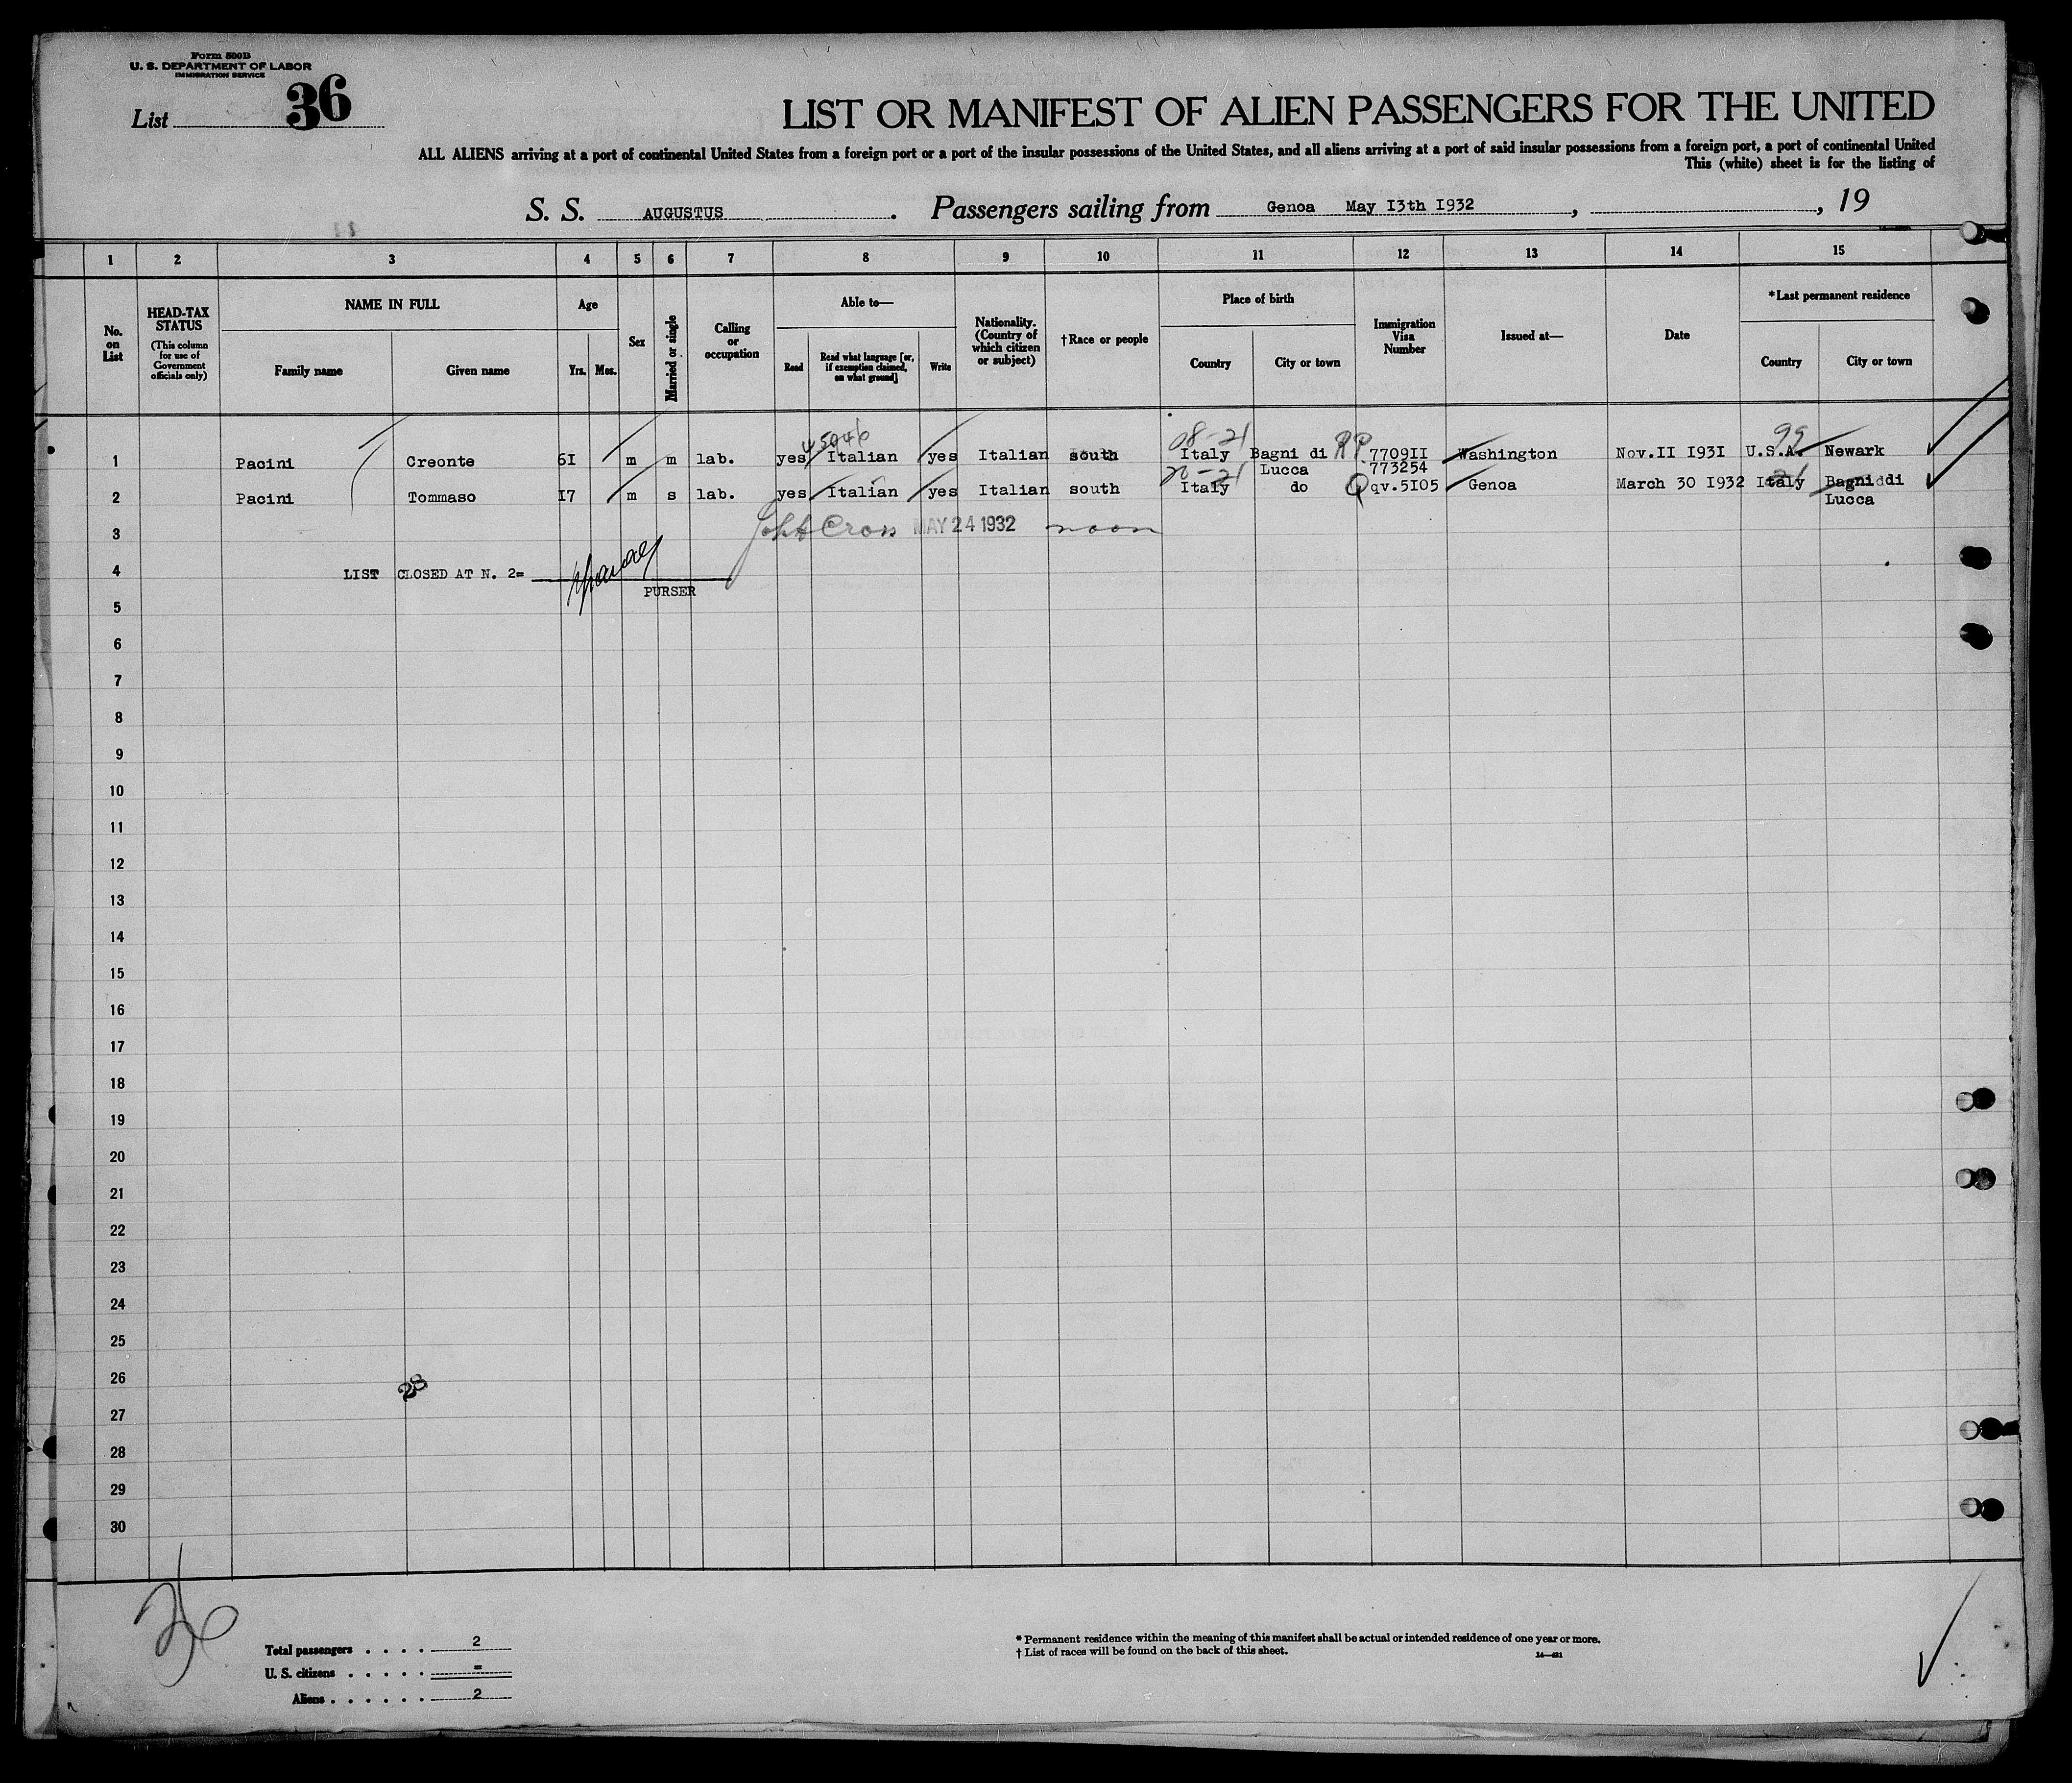 Form 500B
U. S. DEPARTMENT OF LABOR
IMMIGRATION SERVICE
List 36
LIST OR MANIFEST OF ALIEN PASSENGERS FOR THE UNITED
ALL ALIENS arriving at a port of continental United States from a foreign port or a port of the insular possessions of the United States, and all aliens arriving at a port of said insular possessions from a foreign port, a port of continental United
This (white) sheet is for the listing of
S. S. AUGUSTUS. Passengers sailing from Genoa May I3th I932, , 19
1 2 3 4 5 6 7 8 9 10 11 12 13 14 15
No. on List
HEAD-TAX STATUS
(This column for use of Government officials only)
NAME IN FULL
Family name
Given name
Age
Yrs.
Mos.
Sex
Married or single
Calling or occupation
Able to—
Read
Read what language [or, if exemption claimed, on what ground]
Write
Nationality. (Country of which citizen or subject)
†Race or people
Place of birth
Country
City or town
Immigration Visa Number
Issued at—
Date
*Last permanent residence
Country
City or town
45946 08-21 RP 99
1 Pacini Creonte 6I m m lab. yes Italian yes Italian south Italy Bagni di Lucca 7709II 773254 Washington Nov.II I93I U.S.A. Newark
20-21 21
2 Pacini Tommaso I7 m s lab. yes Italian yes Italian south Italy do Q qv.5I05 Genoa March 30 I932 Italy Bagni di Lucca
3 Cross MAY 24 1932 noon
4 LIST CLOSED AT N. 2=
PURSER
5
6
7
8
9
10
11
12
13
14
15
16
17
18
19
20
21
22
23
24
25
26
28
27
28
29
30
36
Total passengers . . . . 2
U. S. citizens . . . . . =
Aliens . . . . . . 2
* Permanent residence within the meaning of this manifest shall be actual or intended residence of one year or more.
† List of races will be found on the back of this sheet.
14—421